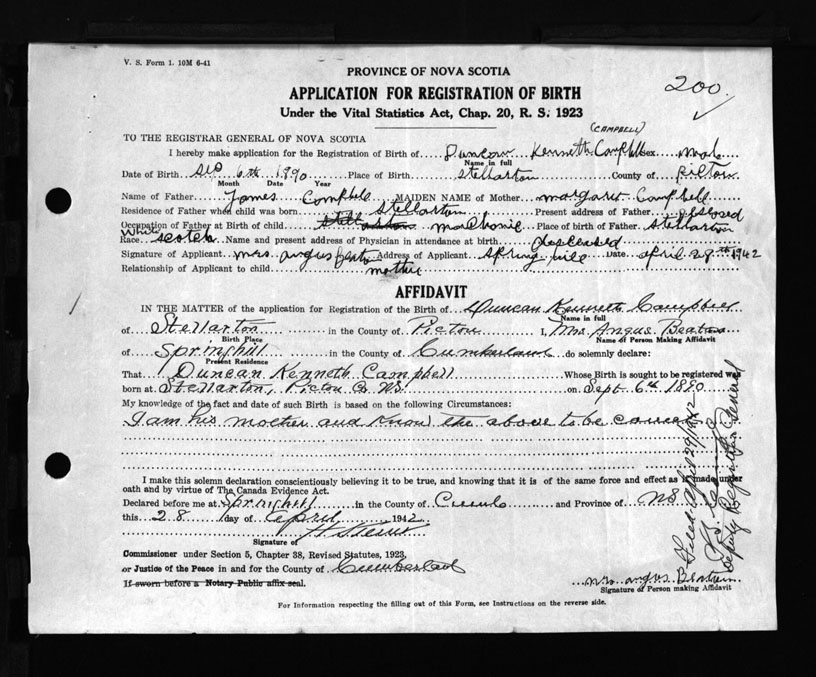 V. S. Form 1. 10M 6-41
PROVINCE OF NOVA SCOTIA
200
APPLICATION FOR REGISTRATION OF BIRTH
Under the Vital Statistics Act, Chap. 20, R. S. 1923
(CAMPBELL)
TO THE REGISTRAR GENERAL OF NOVA SCOTIA
I hereby make application for the Registration of Birth of Duncan Kenneth Campbell Sex Male
Name in full
Date of Birth Sep 6th 1890 Place of Birth Stellarton County of Pictou
Month Date Year
Name of Father James Campbell MAIDEN NAME of Mother Margaret Campbell
Residence of Father when child was born Stellarton Present address of Father
Occupation of Father at Birth of child Place of Birth of Father Stellarton
White
Race Scotch Name and present address of Physician in attendance at birth Deceased
Signature of Applicant Mrs Angus Beaton Address of Applicant Spring hill Date April 28th 1942
Relationship of Applicant to child mother
AFFIDAVIT
IN THE MATTER of the application for Registration of the Birth of Duncan Kenneth Campbell
Name in full
of Stellarton in the County of Pictou I, Mrs. Angus Beaton
Birth Place Name of Person Making Affidavit
of Springhill in the County of Cumberland do solemnly declare:
Present Residence
That Duncan Kenneth Campbell Whose Birth is sought to be registered was
born at Stellarton, Pictou Co NS. on Sept 6th 1890
My knowledge of the fact and date of such Birth is based on the following Circumstances:
I am his mother and know the above to be correct
I make this solemn declaration conscientiously believing it to be true, and knowing that it is of the same force and effect as if made under
oath and by virtue of The Canada Evidence Act.
Declared before me at Springhill in the County of Cumb and Province of NS
this 28 day of April 1942
Signature of
Commissioner under Section 5, Chapter 38, Revised Statutes, 1923,
or Justice of the Peace in and for the County of Cumberland
If sworn before a Notary Public affix seal.
Mrs. Angus Beaton
Signature of Person making Affidavit
For Information respecting the filling out of this Form, see Instructions on the reverse side.
Filed April 29/1942
Deputy Registrar General